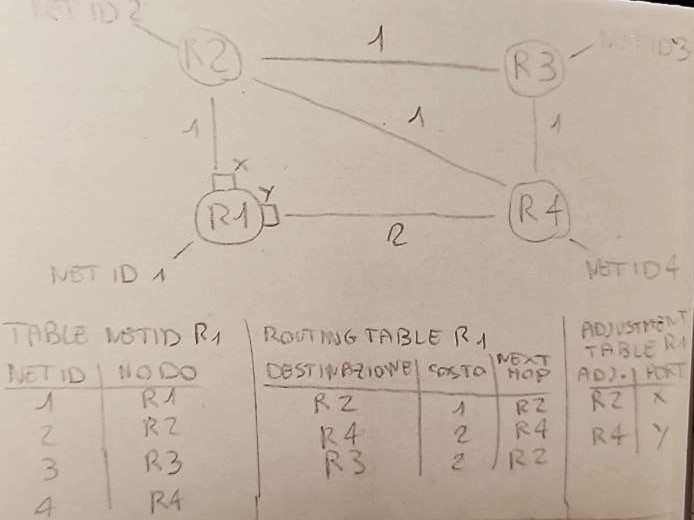 NET ID 2
1
R2
R3
NET ID3
1
1
1
X
Y
R1
R4
2
NET ID 1
NET ID4
TABLE NETID R1
NET ID NODO
1 R1
2 R2
3 R3
4 R4
ROUTING TABLE R1
DESTINAZIONE COSTO NEXT HOP
R2 1 R2
R4 2 R4
R3 2 R2
ADJUSTMENT
TABLE R1
ADJ. PORT
R2 X
R4 Y